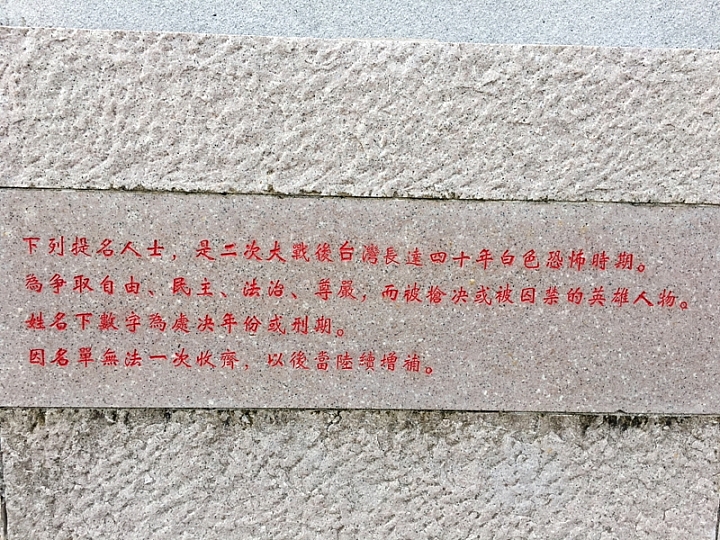 下列提名人士，是二次大戰後台灣長達四十年白色恐怖時期。
為爭取自由、民主、法治、尊嚴，而被槍決或被囚禁的英雄人物。
姓名下數字為處決年份或刑期。
因名單無法一次收齊，以後當陸續增補。